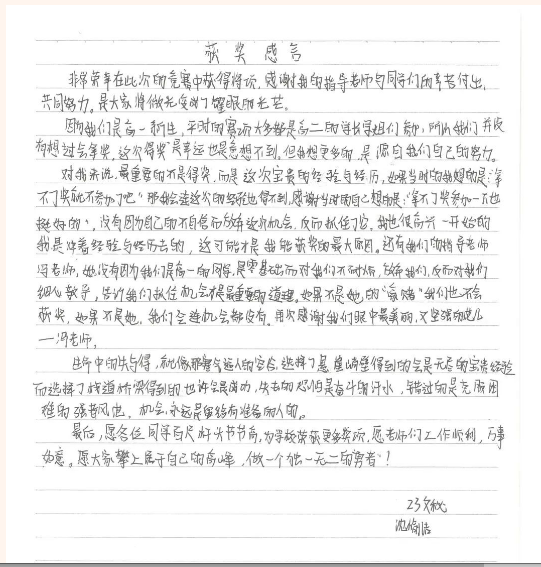 获奖感言
非常荣幸在此次的竞赛中获得奖项,感谢我的指导老师与同学们的辛苦付出,
共同努力。是大家将微光变成了耀眼的光芒。
因为我们是高一新生,平时的赛项大多都是高二的学长学姐们参加,所以我们并没
有想过会拿奖,这次得奖是幸运也是意想不到。但我想更多的是源自我们自己的努力。
对我来说,最重要的不是得奖,而是这次宝贵的经验与经历,如果当时的我想的是:"拿
不了奖就不参加了吧"那我会连这次的经历也得不到,感谢当时的自己想的是:"拿不了奖参加一下也
挺好的",没有因为自己的不自信而放弃这次机会,反而抓住了它,我也很高兴一开始的
我是冲着经验与经历去的,这可能才是我能获奖的最大原因。还有我们的指导老师
冯老师,她没有因为我们是高一的同学,是零基础而对我们不耐烦,放弃我们,反而对我们
细心教导,告诉我们抓住机会才是最重要的道理。如果不是她的"鼓励"我们也不会
获奖,如果不是她,我们会连机会都没有。再次感谢我们眼中最美丽,又坚强的
—冯老师。
生活中的失与得,就像那
选择了悬崖峭壁得到的会是无尽的宝贵经验
而选择了栈道桥梁得到的也许会是成功,失去的恐怕是奋斗的汗水,错过的是克服困
难的强者风范。机会,永远是留给有准备的人的。
最后,愿各位同学百尺竿头节节高,为学校荣获更多奖项,愿老师们工作顺利,万事
如意。愿大家攀上属于自己的高峰,做一个独一无二的勇者!
23文秘